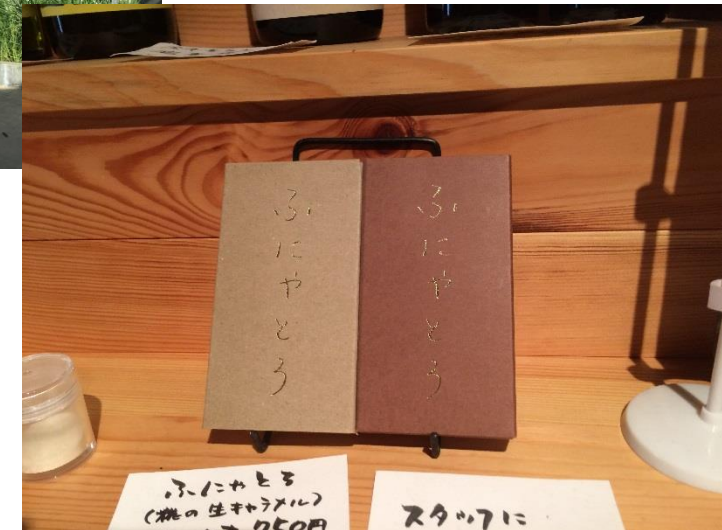 ふにやとろ
ふにやとろ
ふにやとろ
(桃の生キャラメル)
750円
スタッフに